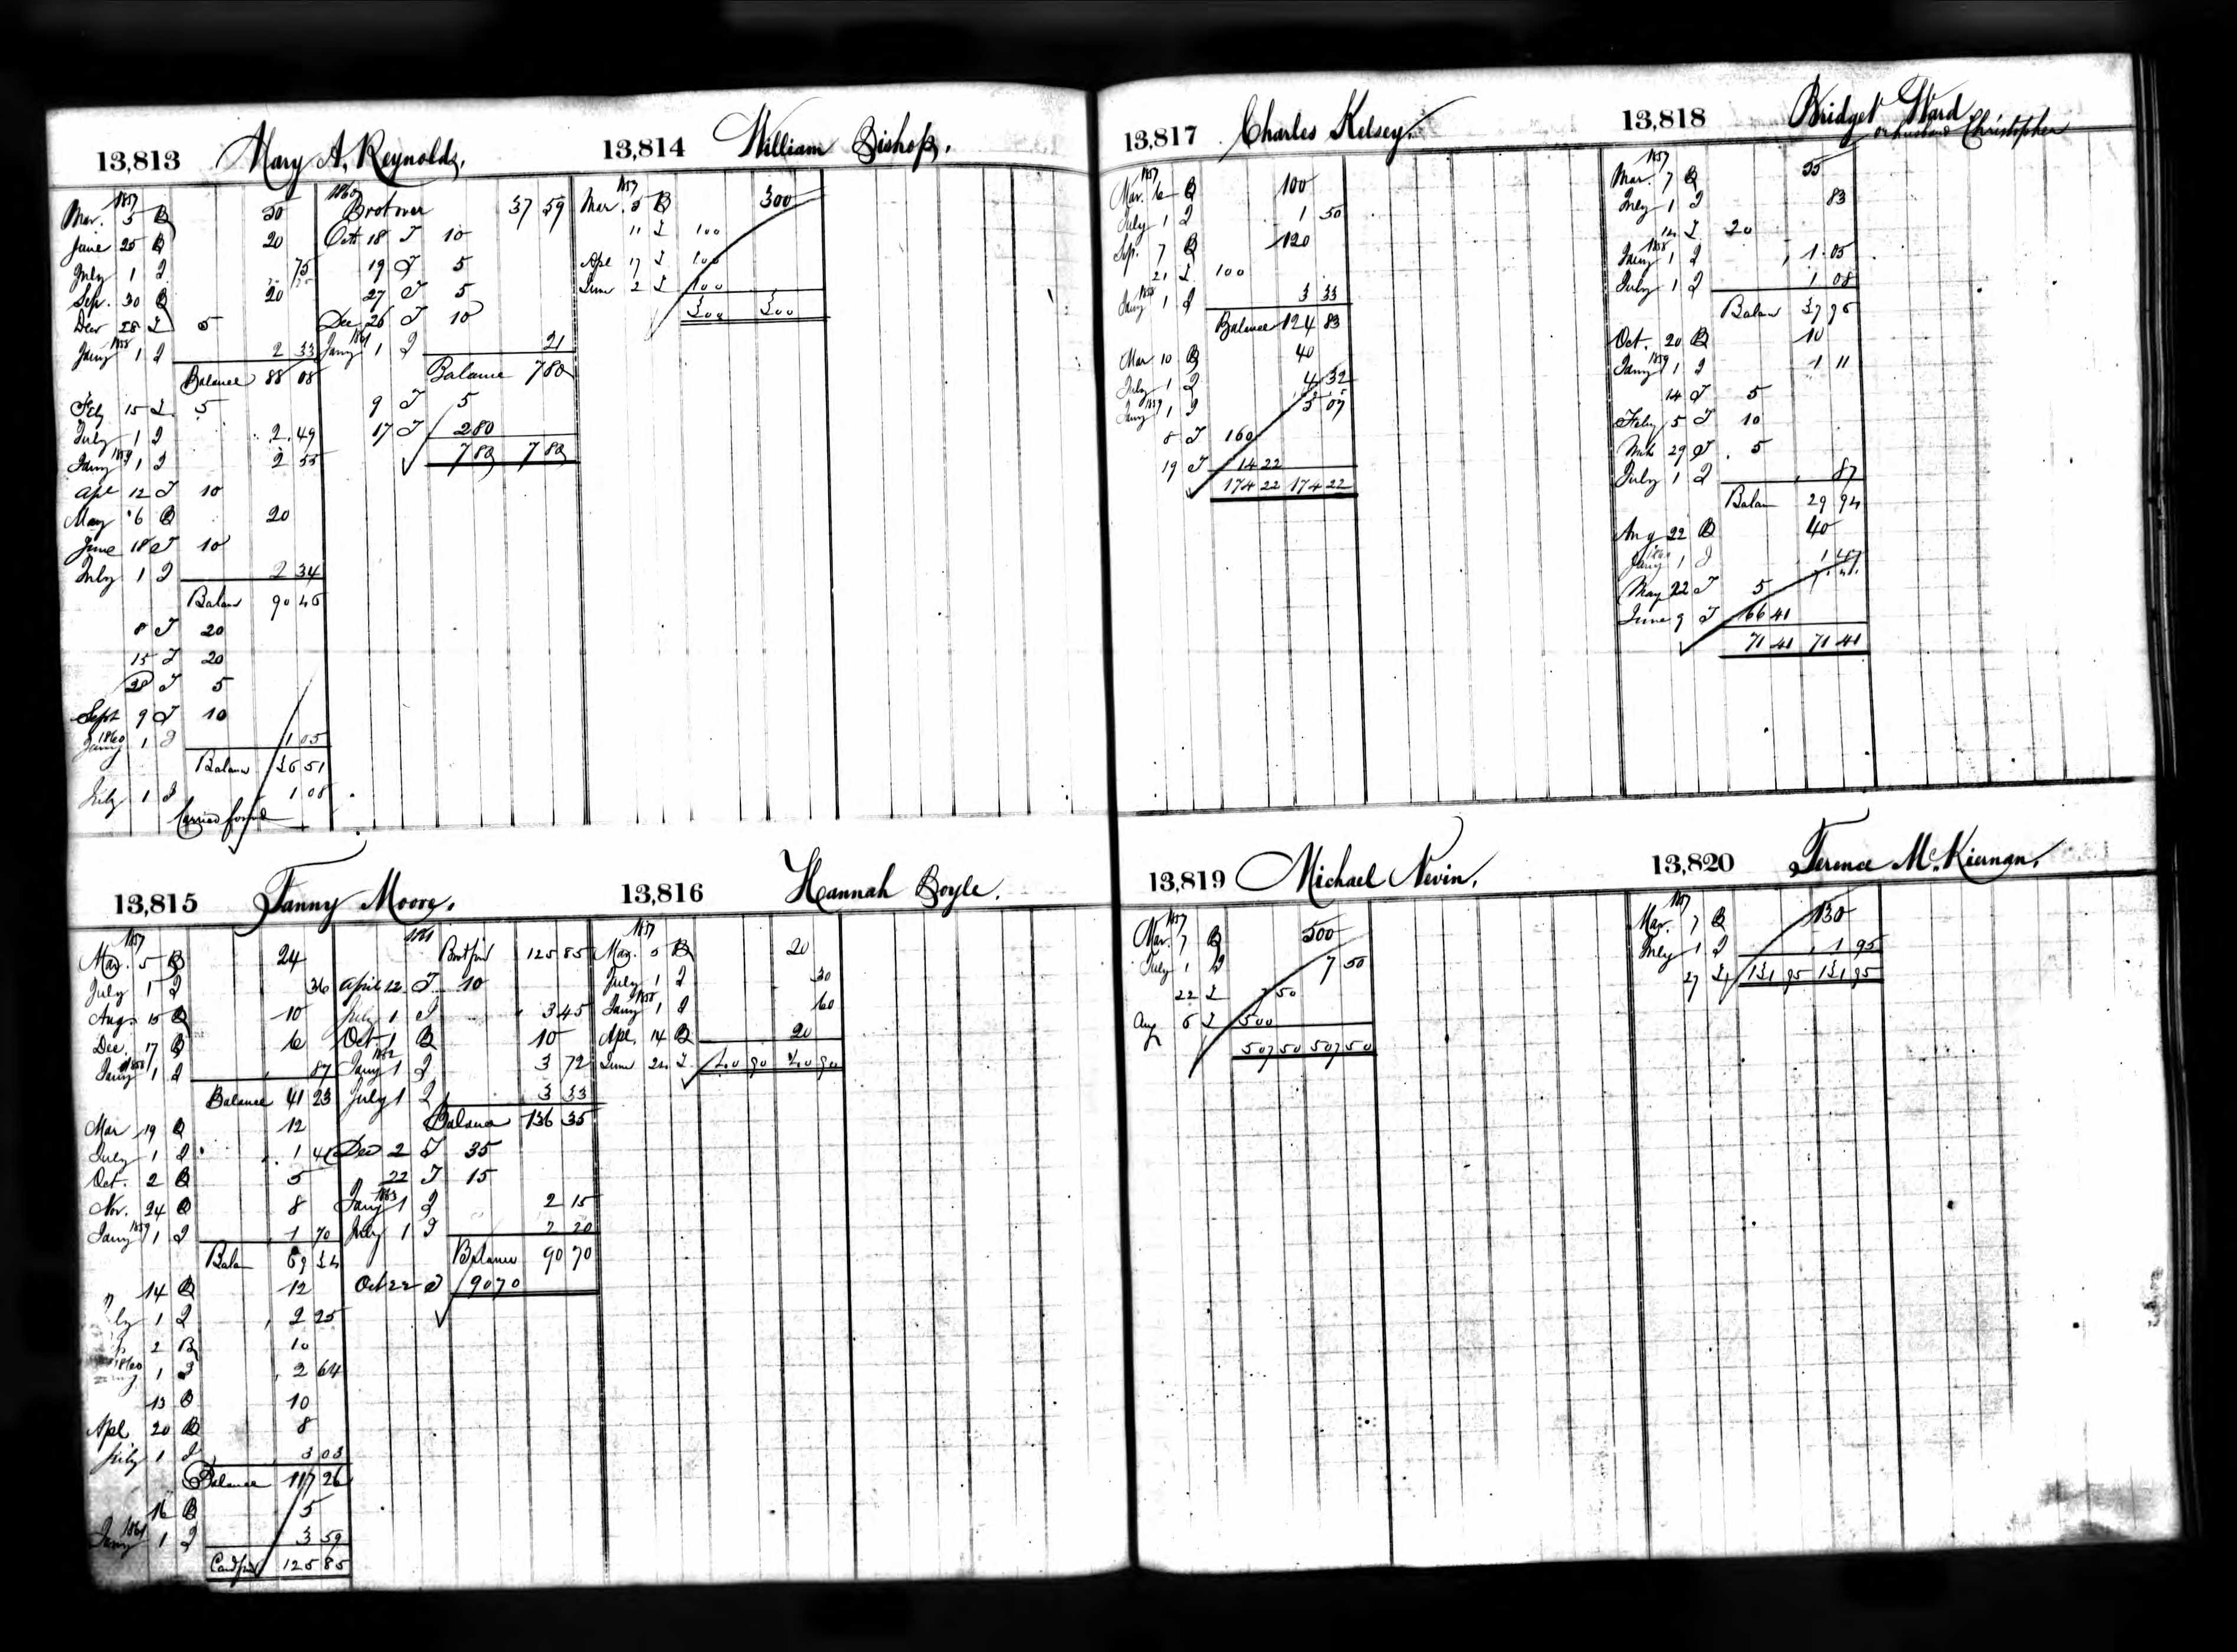 13,813 Mary A. Reynolds.
1857
Mar. 5 D 50
June 25 D 20
July 1 I 75
Sep. 30 D 20
Decr 28 I 5
1858
Jany 1 I 2 33
Balance 88 08
Feby 15 I 5
July 1 I 2 49
1859
Jany 1 I 2 55
Apl 12 I 10
May 6 D 20
June 18 I 10
July 1 I 2 34
Balan 90 46
8 I 20
15 I 20
28 I 5
Sept 9 I 10
1860
Jany 1 I 1 05
Balance 36 51
July 1 I 1 08
Carried forwd
1860
Brot over 37 59
Octr 18 I 10
19 I 5
27 I 5
Dec 26 I 10
1861
Jany 1 I 21
Balance 7 80
9 I 5
17 I 2 80
7 80 7 80
13,814 William Bishop.
1857
Mar. 5 D 300
11 I 100
Apl 17 I 100
June 2 I 100
300 300
13,815 Fanny Moore.
1857
Mar. 5 D 24
July 1 I 36
Aug. 15 D 10
Dec. 17 D 6
1858
Jany 1 I 87
Balance 41 23
Mar 19 D 12
July 1 I 1 41
Oct. 2 D 5
Nov. 24 D 8
1859
Jany 1 I 1 70
Balan 69 34
14 D 12
ly 1 I 2 25
2 D 10
1860
1 I 2 64
13 D 10
Apl 20 D 8
July 1 I 3 03
Balance 117 26
16 D 5
1861
Jany 1 I 3 59
Card ford 125 85
1861
Brot ford 125 85
April 12 I 10
July 1 I 3 45
Oct 1 D 10
1862
Jany 1 I 3 72
July 1 I 3 33
Balance 136 35
Dec 2 I 35
22 I 15
1863
Jany 1 I 2 15
July 1 I 2 20
Balance 90 70
Oct 22 I 90 70
13,816 Hannah Boyle.
1857
Mar. 5 D 20
July 1 I 30
1858
Jany 1 I 60
Apl. 14 D 20
June 24 I 40 90 40 90
13,817 Charles Kelsey.
1857
Mar. 6 D 100
July 1 I 1 50
Sep. 7 D 120
21 I 100
1858
Jany 1 I 3 33
Balance 124 83
Mar 10 D 40
July 1 I 4 32
1859
Jany 1 I 5 07
8 I 160
19 I 14 22
174 22 174 22
13,818 Bridget Ward
or husband Christopher
1857
Mar. 7 D 55
July 1 I 83
14 I 20
1858
Jany 1 I 1 05
July 1 I 1 08
Balan 37 96
Oct. 20 D 10
1859
Jany 1 I 1 11
14 I 5
Feby 5 I 10
Mch 29 I 5
July 1 I 87
Balan 29 94
Aug 22 D 40
1860
Jany 1 I 1 47
May 22 I 5
June 9 I 66 41
71 41 71 41
13,819 Michael Nevin.
1857
Mar. 7 D 500
July 1 I 7 50
22 I 7 50
Aug 6 I 500
507 50 507 50
13,820 Terence McKiernan.
1857
Mar. 7 D 130
July 1 I 1 95
27 I 131 95 131 95